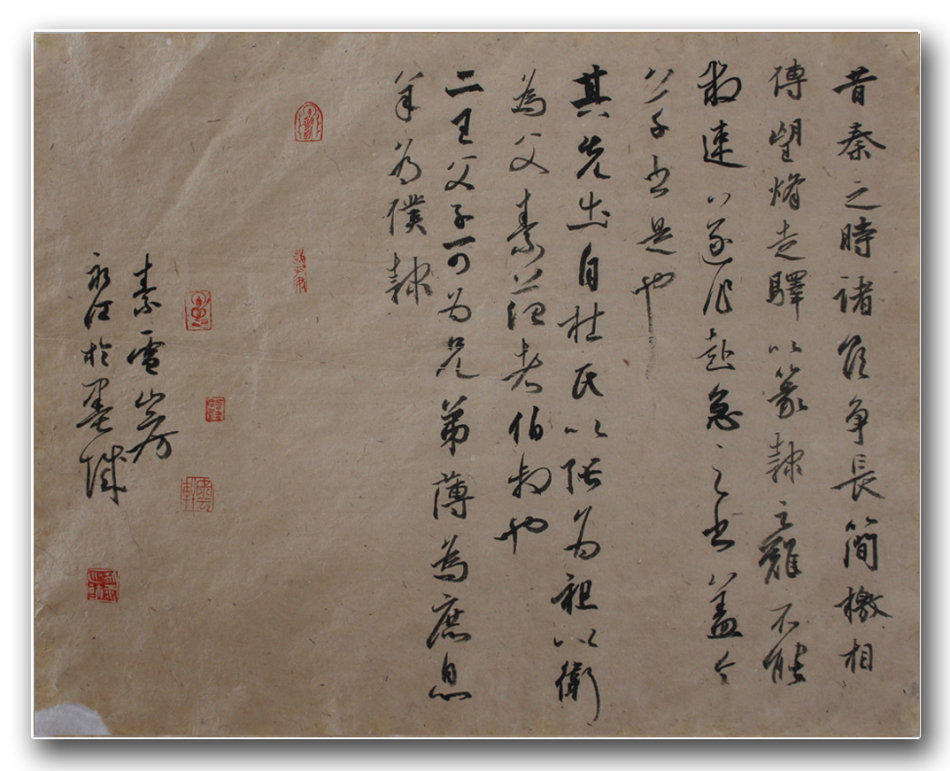 昔秦之時諸侯争長簡檄相
傳望烽走驛以篆隸之難不能
救速遂作赴急之书蓋今
草书是也
其先出自杜氏以張为祖以衛
為父索范者伯叔也
二王父子可为兄弟薄為庶息
羊为僕隸
素雪山房
永江於墨城